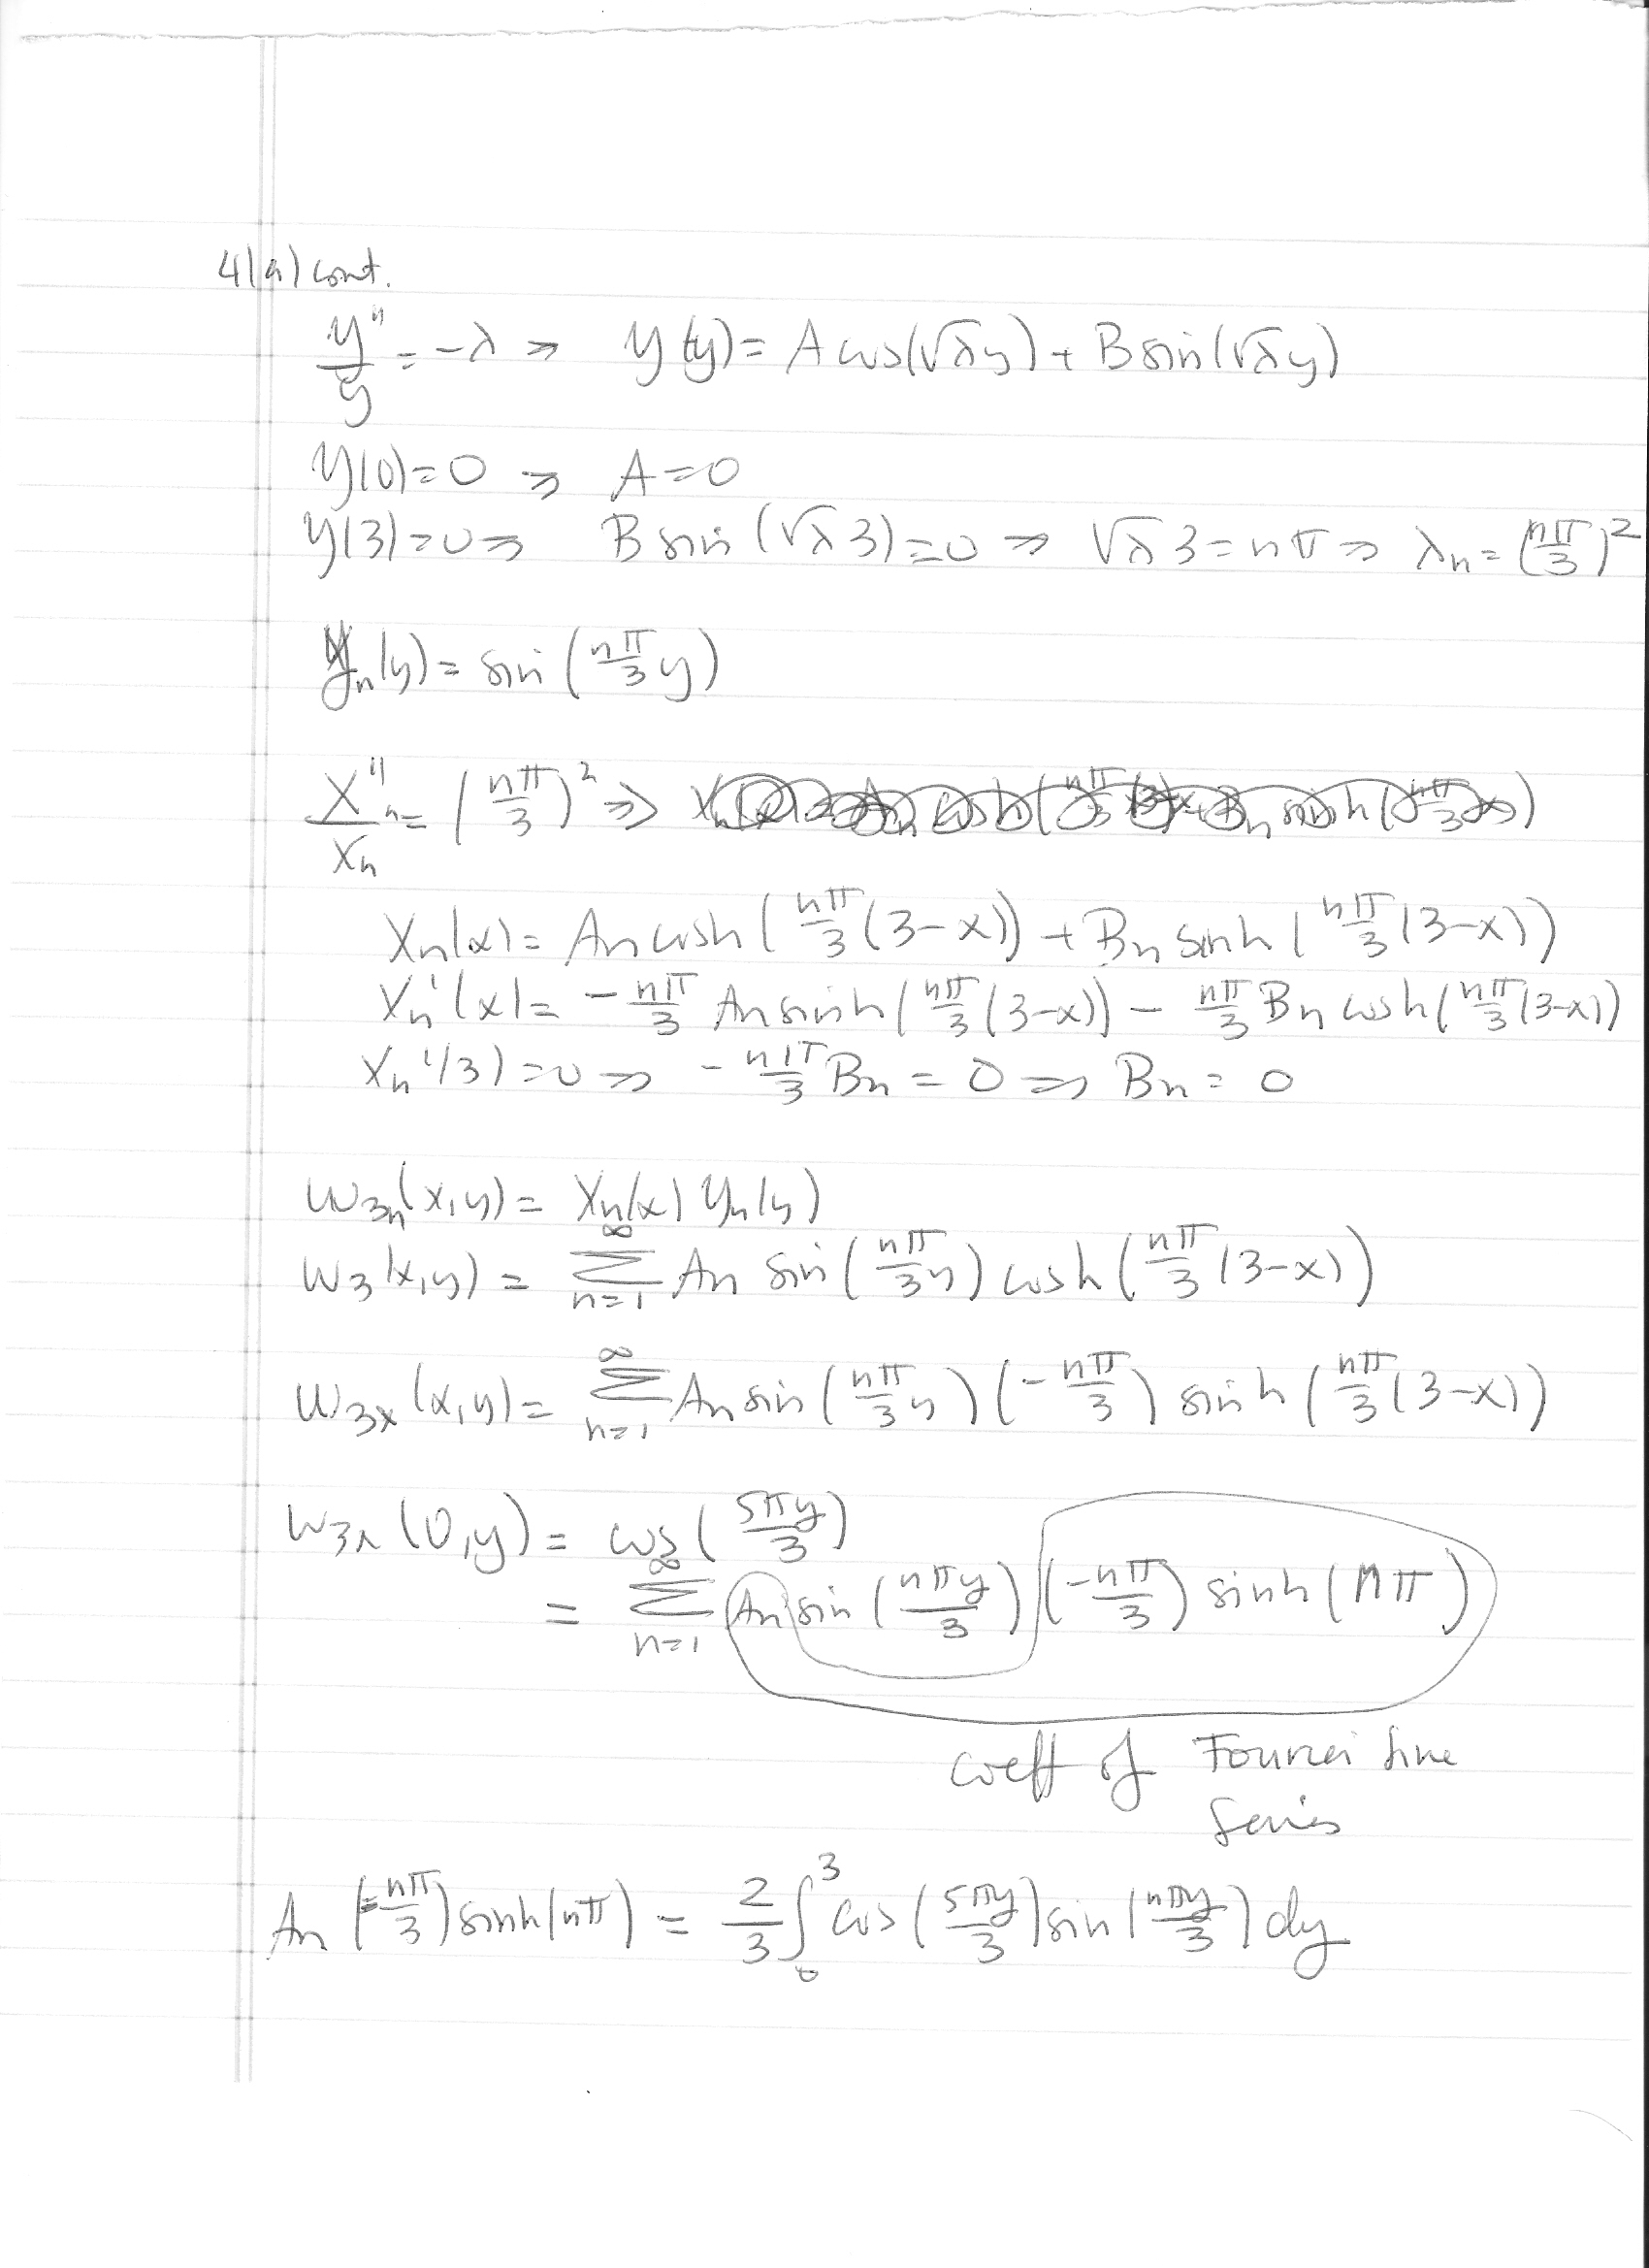 4(a) cont.
Y''/Y = -λ ⇒ Y(y) = A cos(√λy) + B sin(√λy)
Y(0)=0 ⇒ A=0
Y(3)=0 ⇒ B sin(√λ3)=0 ⇒ √λ3=nπ ⇒ λn=(nπ/3)²
Yn(y) = sin(nπ/3 y)
Xn''/Xn = (nπ/3)² ⇒
Xn(x) = An cosh(nπ/3(3-x)) + Bn sinh(nπ/3(3-x))
Xn'(x) = -nπ/3 An sinh(nπ/3(3-x)) - nπ/3 Bn cosh(nπ/3(3-x))
Xn'(3)=0 ⇒ -nπ/3 Bn = 0 ⇒ Bn = 0
w3n(x,y) = Xn(x) Yn(y)
w3(x,y) = ∑_{n=1}^{∞} An sin(nπ/3 y) cosh(nπ/3(3-x))
w3x(x,y) = ∑_{n=1}^{∞} An sin(nπ/3 y)(-nπ/3) sinh(nπ/3(3-x))
w3x(0,y) = cos(5πy/3)
= ∑_{n=1}^{∞} An sin(nπy/3)(-nπ/3) sinh(nπ)
coeff of Fourier Sine
Series
An(-nπ/3) sinh(nπ) = 2/3 ∫_0^3 cos(5πy/3) sin(nπy/3) dy